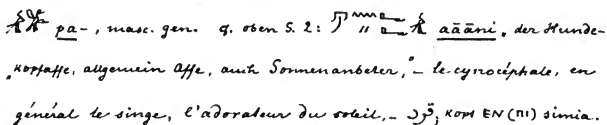 pa-, masc. gen. cf. oben S. 2: aāāni „der Hunde-
„kopfaffe, allgemein Affe, auch Sonnenanbeter,“ – le cynocéphale, en
général le singe, l'adorateur du soleil, – قرد, kopt EN (ΠΙ) simia.